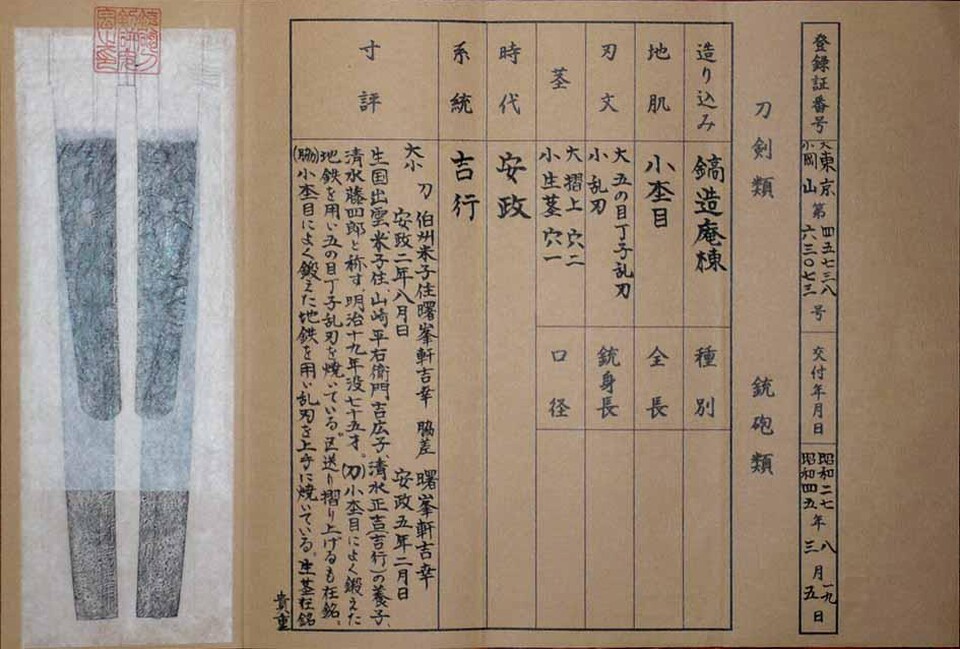 登録証番号
大東京 第 四五七三八
小岡山 六三〇七三 号
交付年月日
昭和二七年 八月 一九日
昭和四五年 三月 五日
刀剣類
銃砲類
造り込み
鎬造庵棟
種別
地肌
小杢目
全長
刃文
大五の目丁子乱刃
小乱刃
銃身長
茎
大摺上 穴二
小生茎 穴一
口径
時代
安政
系統
吉行
寸評
大小 刀 伯州米子住曙峯軒吉幸 脇差 曙峯軒吉幸
安政二年八月日 安政五年二月日
生国出雲米子住、山崎平右衛門吉広子、清水正吉吉行)の養子、
清水藤四郎と称す。明治十九年没七十五才。(刀)小杢目によく鍛えた
地鉄を用い五の目丁子乱刃を焼いている。区送り摺り上げるも在銘、
(脇)小杢目によく鍛えた地鉄を用い乱刃を上手に焼いている。生茎在銘
貴重